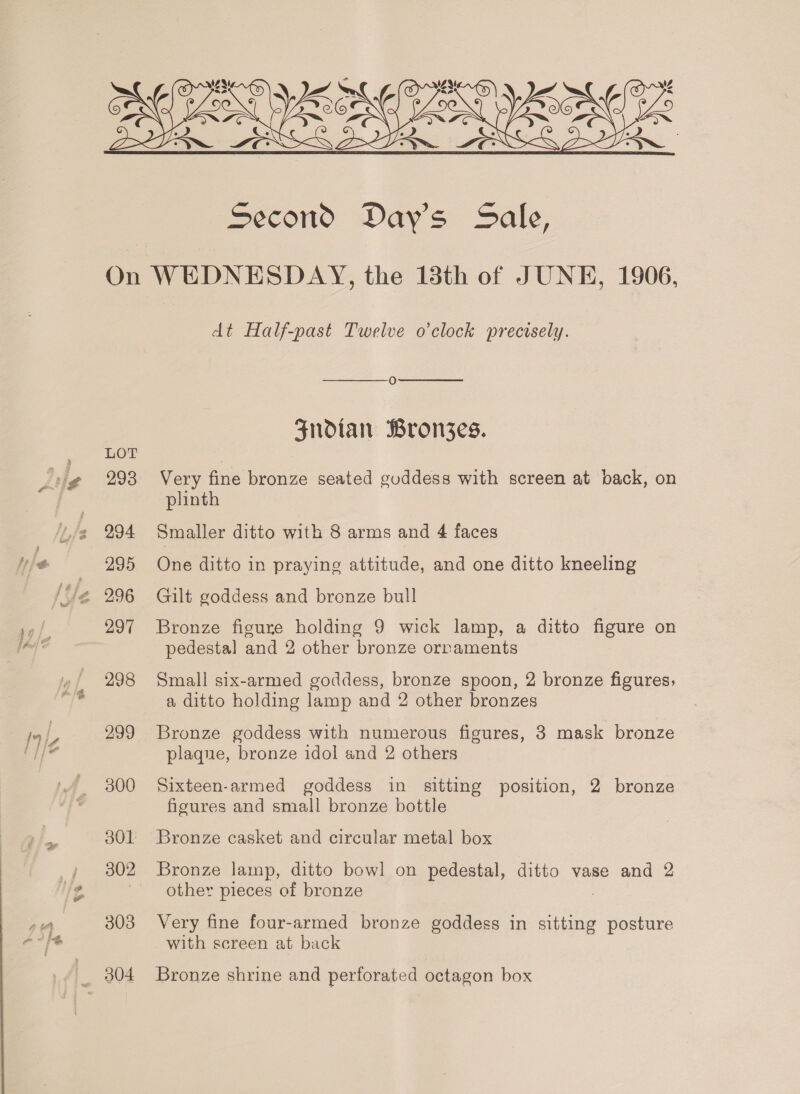 Second Day's Sale,
On WEDNESDAY, the 13th of JUNE, 1906,
At Half-past Twelve o'clock precisely.
Indian Bronzes.
LOT
293 Very fine bronze seated goddess with screen at back, on
plinth
294 Smaller ditto with 8 arms and 4 faces
295 One ditto in praying attitude, and one ditto kneeling
296 Gilt goddess and bronze bull
297 Bronze figure holding 9 wick lamp, a ditto figure on
pedestal and 2 other bronze ornaments
298 Small six-armed goddess, bronze spoon, 2 bronze figures,
a ditto holding lamp and 2 other bronzes
299 Bronze goddess with numerous figures, 3 mask bronze
plaque, bronze idol and 2 others
300 Sixteen-armed goddess in sitting position, 2 bronze
figures and small bronze bottle
301 Bronze casket and circular metal box
302 Bronze lamp, ditto bowl on pedestal, ditto vase and 2
other pieces of bronze
303 Very fine four-armed bronze goddess in sitting posture
with screen at back
304 Bronze shrine and perforated octagon box